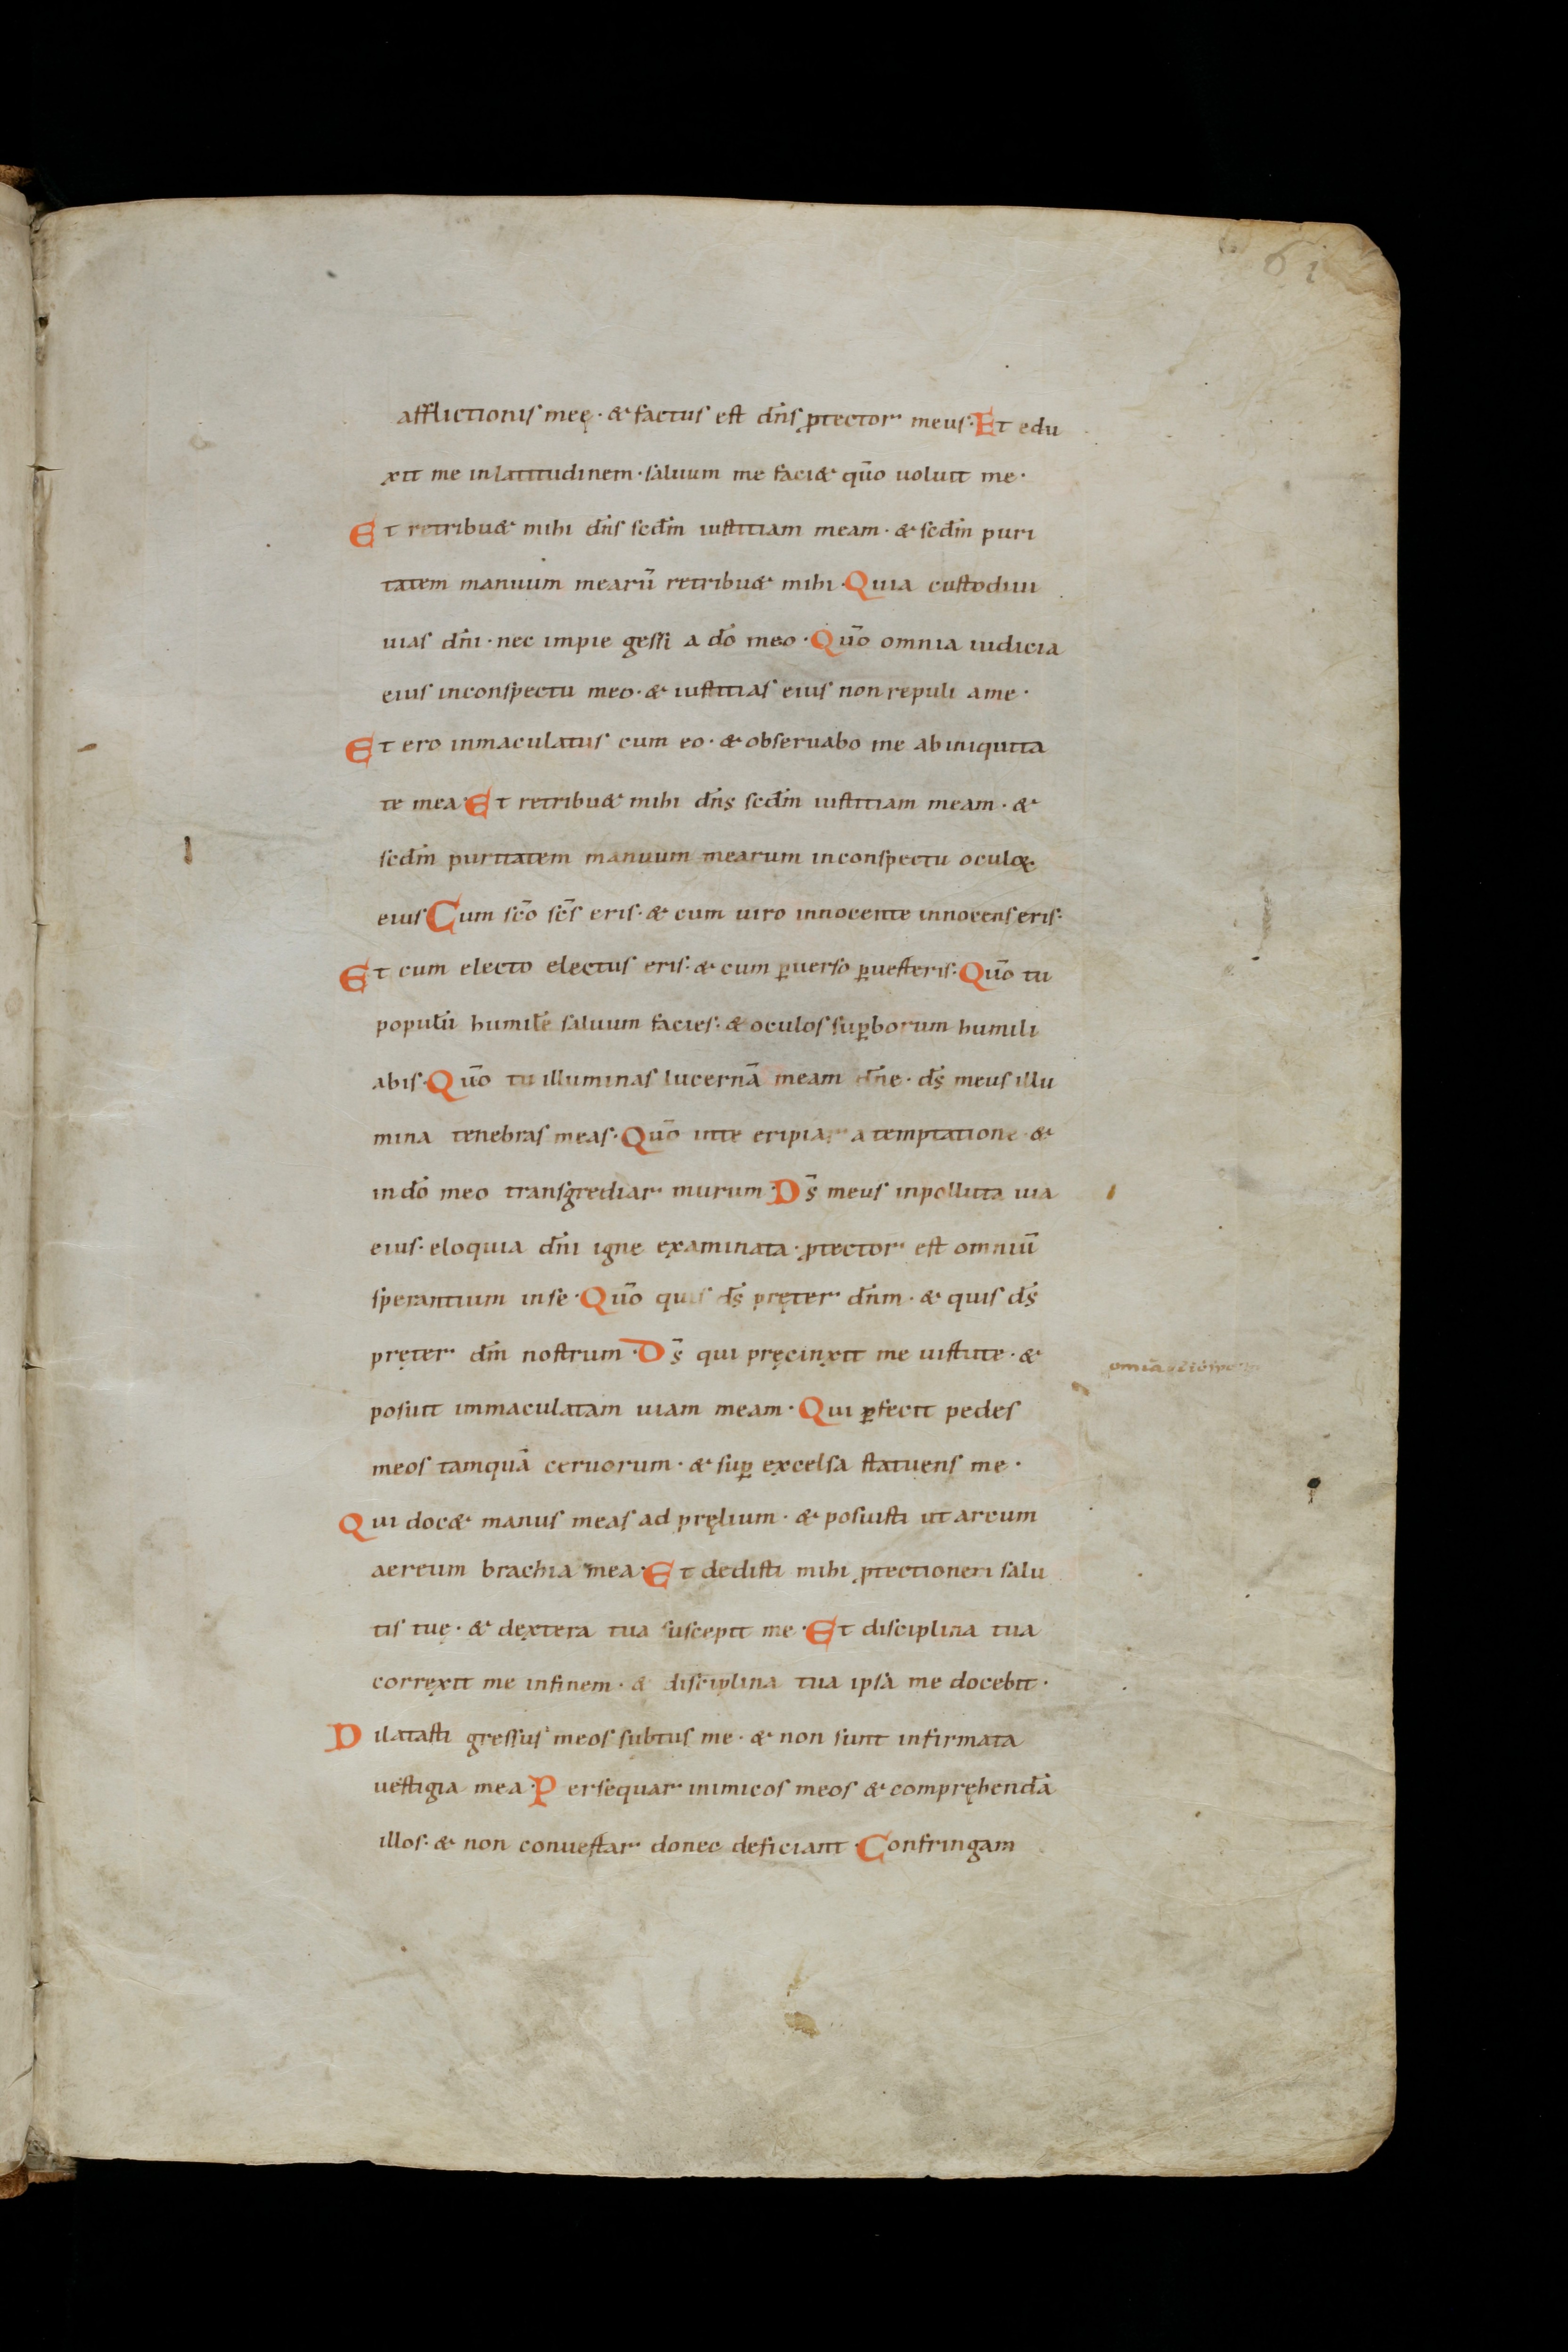 61
afflictionis meę · & factus est dn̄s ꝓtector meus · Et edu
xit me inlatitudinem · saluum me faci& qūo uoluit me ·
Et retribu& mihi dn̄s scdm̄ iustitiam meam · & scdm̄ puri
tatem manuum mearū retribu& mihi · Quia custodiui
uias dn̄i · nec impie gessi a dō meo · Qūo omnia iudicia
eius inconspectu meo · & iustitias eius non repuli ame ·
Et ero inmaculatus cum eo · & obseruabo me abiniquita
te mea · Et retribu& mihi dn̄s scdm̄ iustitiam meam · &
scdm̄ puritatem manuum mearum inconspectu oculoꝝ
eius Cum scō scs̄ eris · & cum uiro innocente innocens eris ·
Et cum electo electus eris · & cum ꝑuerso ꝑuerteris · Qūo tu
populū humilē saluum facies · & oculos suꝑborum humili
abis · Qūo tu illuminas lucernā meam dn̄e · ds̄ meus illu
mina tenebras meas · Qūo inte eripiar a temptatione &
indō meo transgrediar murum · Ds̄ meus inpolluta uia
eius · eloquia dn̄i igne examinata · ꝓtector est omniū
sperantium inse · Qūo quis ds̄ pręter dn̄m · & quis ds̄
pręter dm̄ nostrum · Ds̄ qui pręcinxit me uirtute · &
posuit immaculatam uiam meam · Qui ꝑfecit pedes
meos tamquā ceruorum · & suꝑ excelsa statuens me ·
Qui doc& manus meas ad pręlium · & posuisti ut arcum
aereum brachia mea · Et dedisti mihi ꝓtectionem salu
tis tuę · & dextera tua suscepit me · Et disciplina tua
correxit me infinem · & disciplina tua ipsa me docebit ·
Dilatasti gressus meos subtus me · & non sunt infirmata
uestigia mea · Persequar inimicos meos & compręhendā
illos · & non conuertar donec deficiant · Confringam